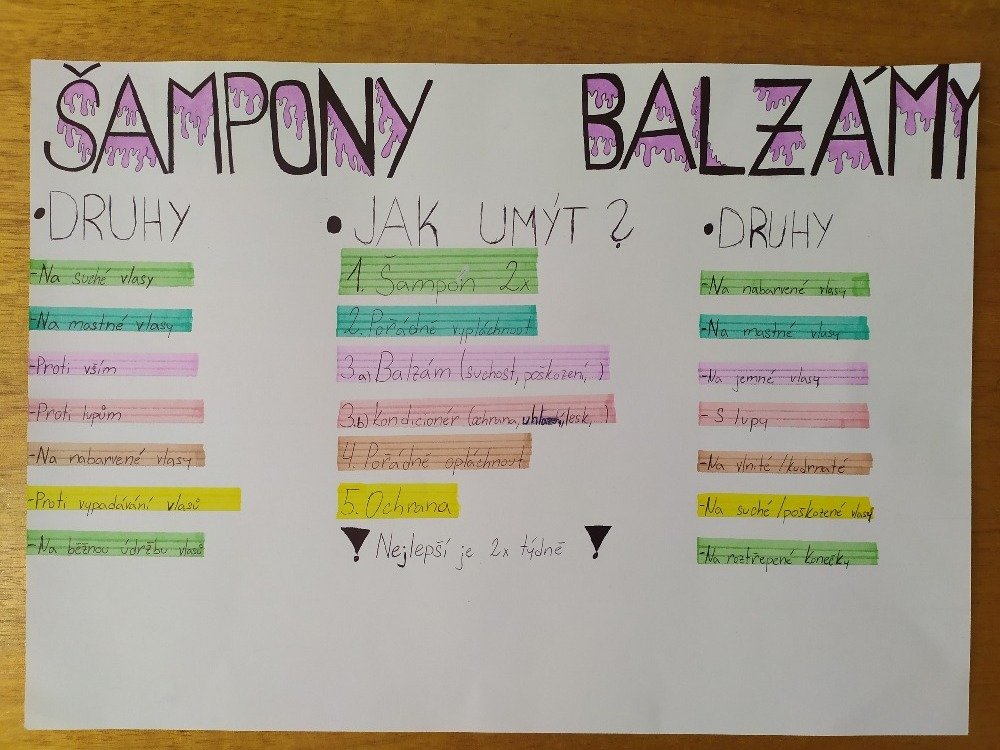 ŠAMPONY
BALZÁMY
•DRUHY
-Na suché vlasy
-Na mastné vlasy
-Proti vším
-Proti lupům
-Na nabarvené vlasy
-Proti vypadávání vlasů
-Na běžnou údržbu vlasů
•JAK UMÝT?
1. Šampón 2x
2. Pořádně vypláchnout
3a) Balzám (suchost, poškození, )
3.b) kondicionér (ochrana, uhlazení, lesk, )
4. Pořádně opláchnout
5. Ochrana
Nejlepší je 2x týdně
•DRUHY
-Na nabarvené vlasy
-Na mastné vlasy
-Na jemné vlasy
- S lupy
-Na vlnité/kudrnaté
-Na suché/poškozené vlasy
-Na roztřepené konečky